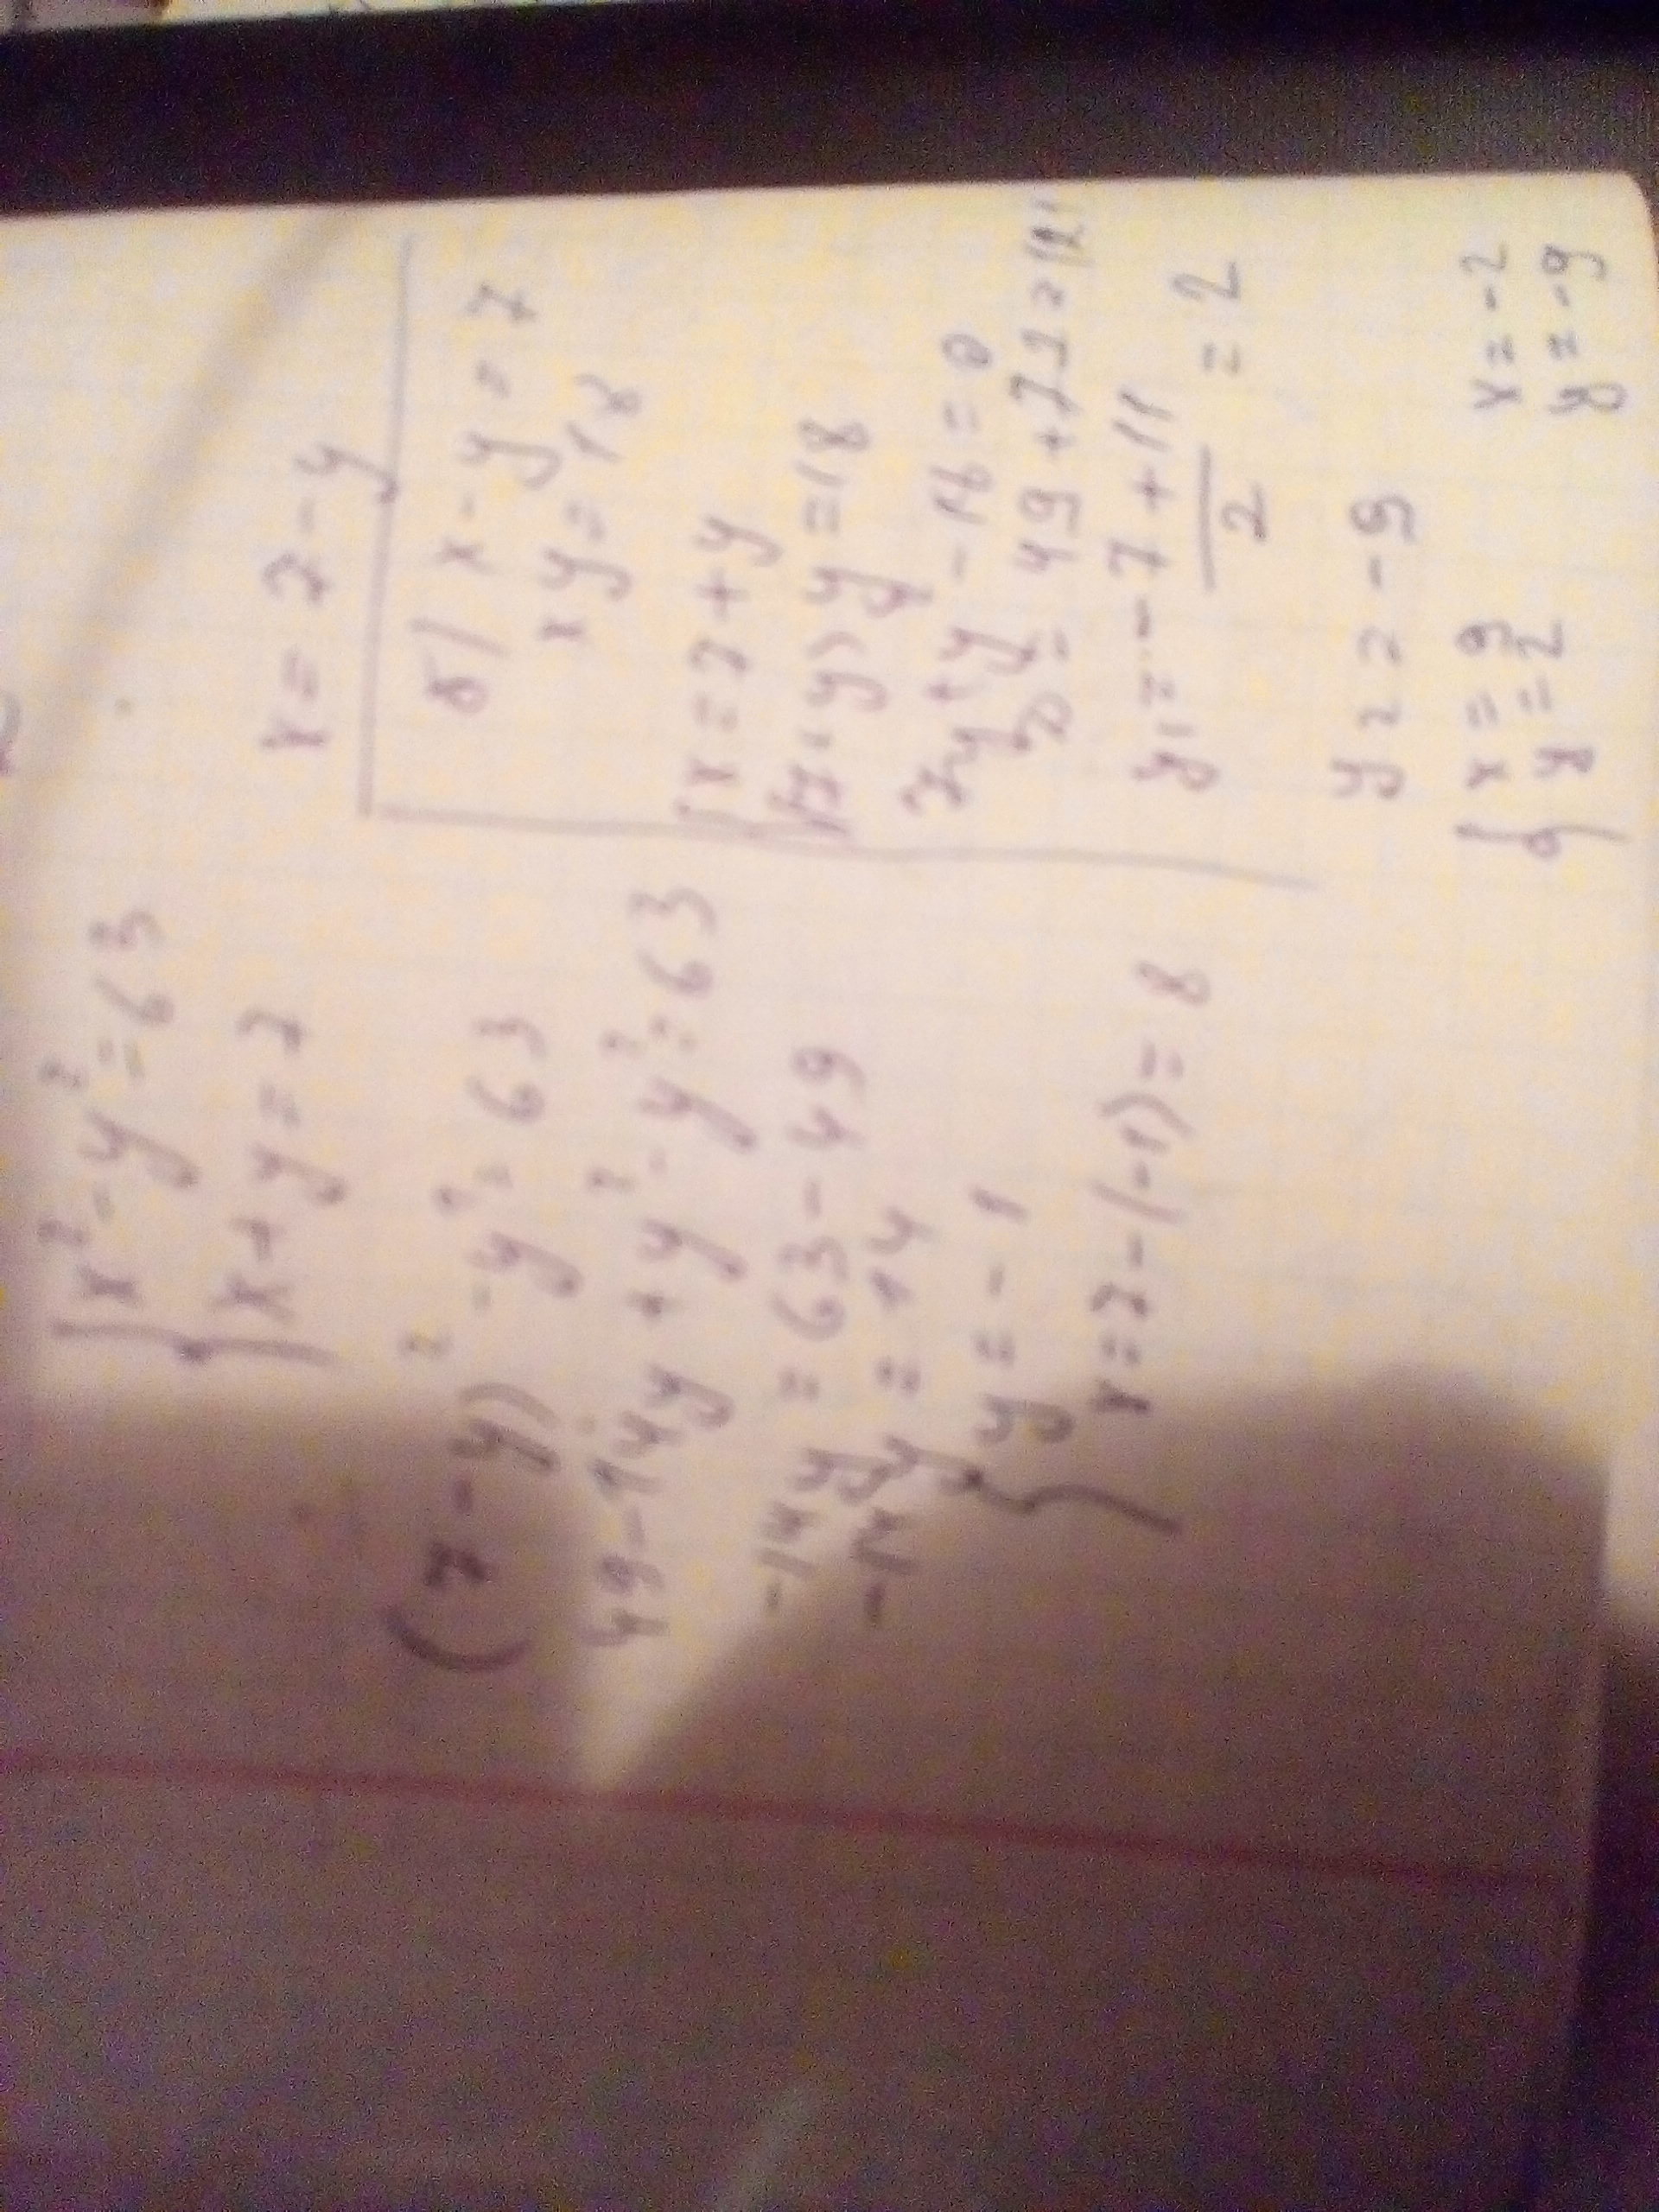 {x²-y²=63
{x+y=7
x=7-y
(7-y)²-y²=63
49-14y+y²-y²=63
-14y=63-49
-14y=14
{y=-1
x=7-(-1)=8
б) x-y=7
xy=18
{x=7+y
{(7+y)y=18
7y+y -18=0
D=49+72=121
y1=-7+11/2=2
y2=-9
{x=9
{y=2
x=-2
y=-9